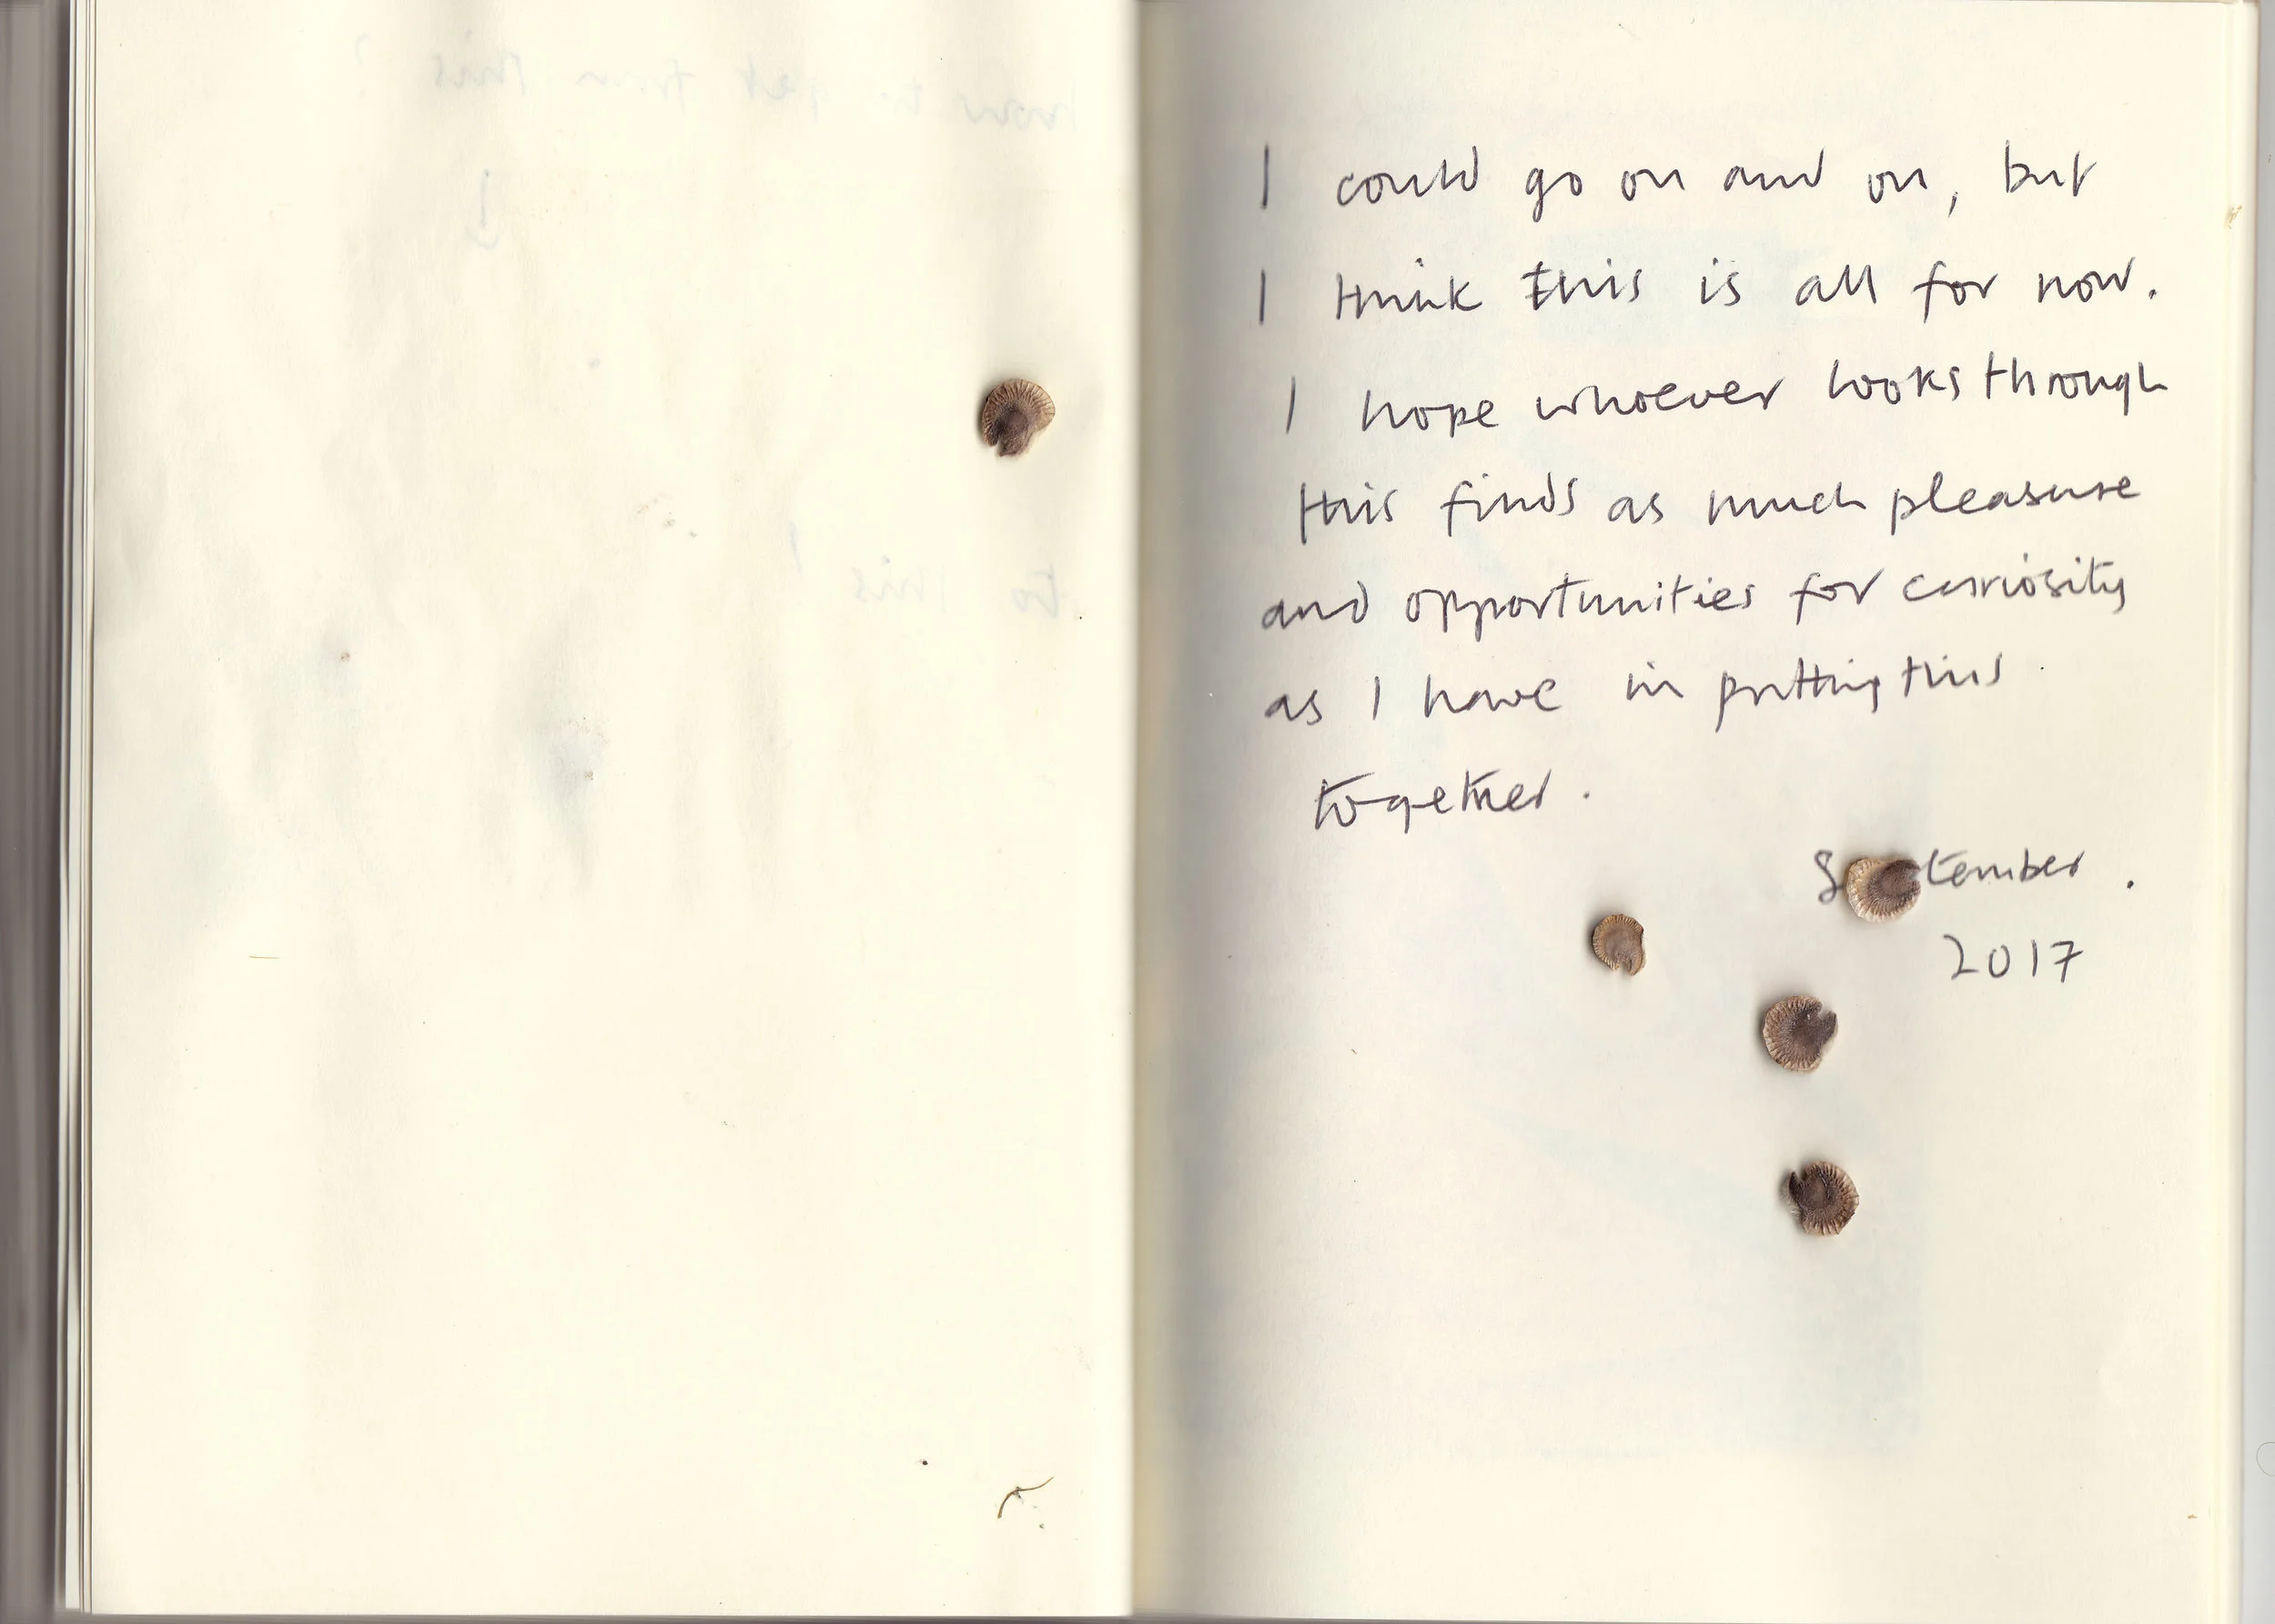 how to get from this ?
to this !
I could go on and on, but
I think this is all for now.
I hope whoever looks through
this finds as much pleasure
and opportunities for curiosity
as I have in putting this
together.
September.
2017